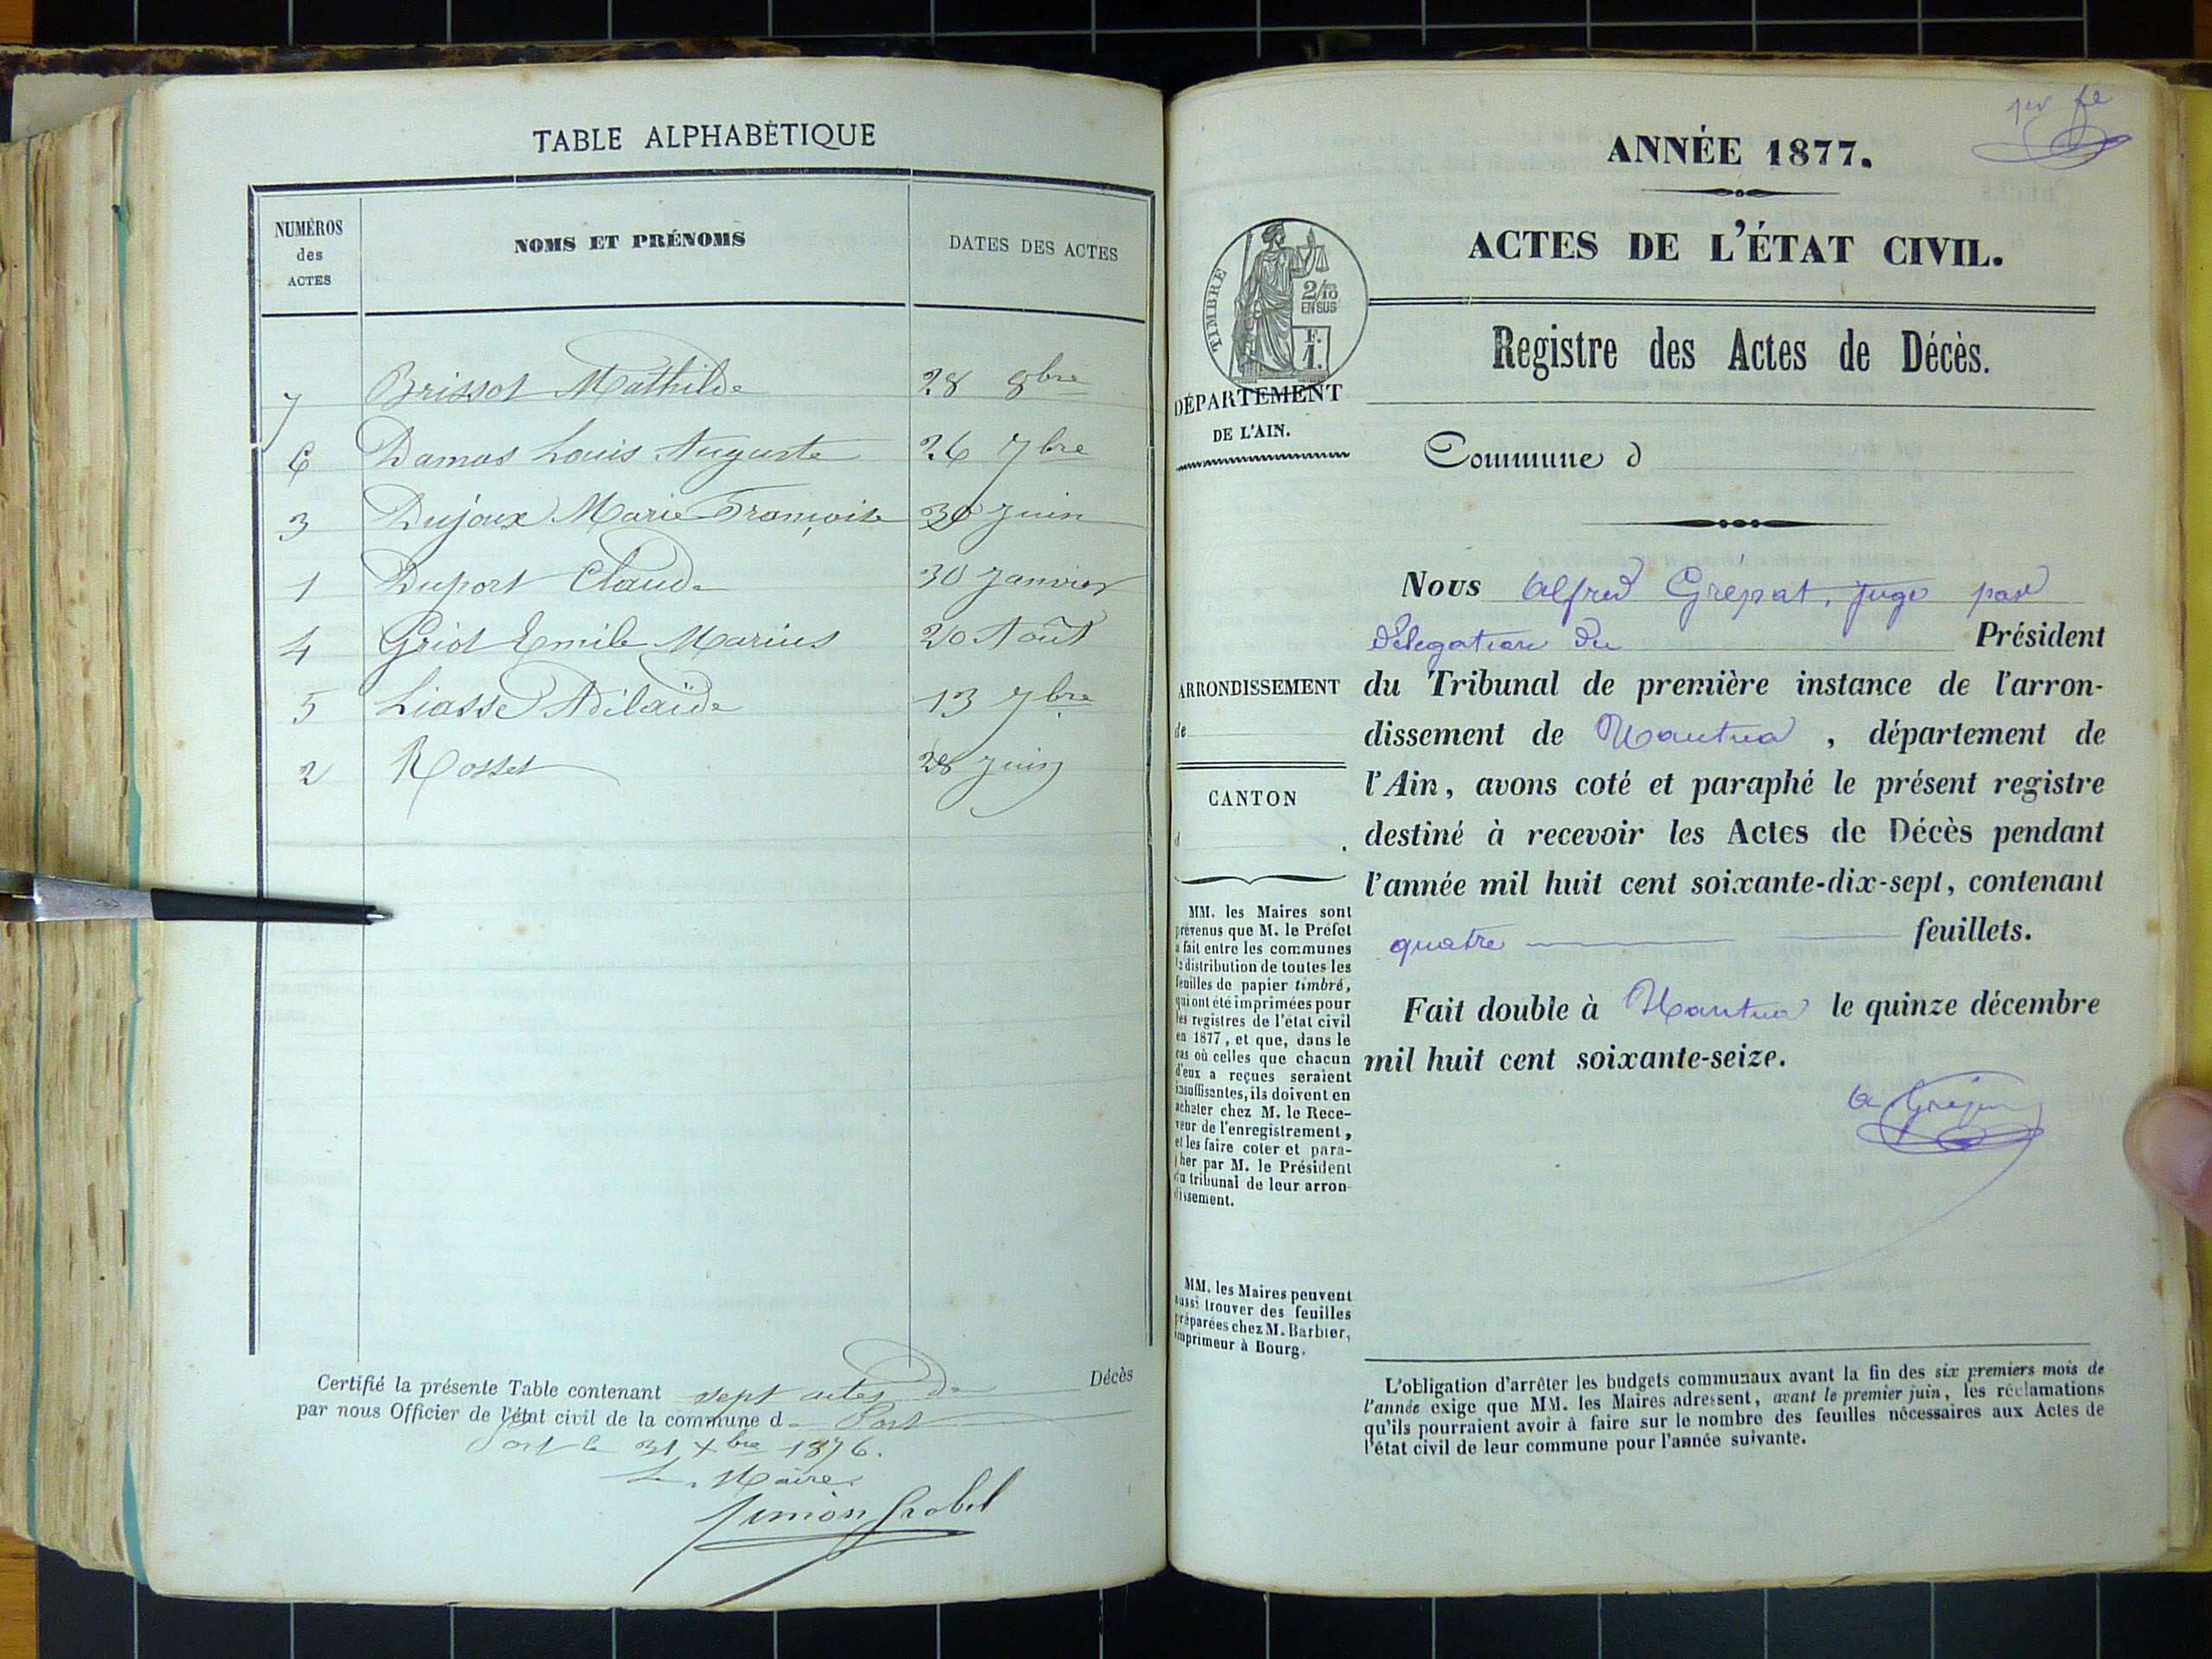 TABLE ALPHABÈTIQUE
NUMÉROS des ACTES
NOMS ET PRÉNOMS
DATES DES ACTES
7 Brissot Mathilde 28 8bre
6 Damas Louis Auguste 26 7bre
3 Dujoux Marie Françoise 30 Juin
1 Duport Claude 30 Janvier
4 Griot Emile Marius 20 Août
5 Liasse Adélaïde 13 7bre
2 Rosset 28 Juin
Certifié la présente Table contenant sept actes de Décès
par nous Officier de l'état civil de la commune de Port
Port le 31 Xbre 1876.
Le Maire
1er fe
ANNÉE 1877.
ACTES DE L'ÉTAT CIVIL.
TIMBRE
2/10
EN SUS
F.
1.
Registre des Actes de Décès.
DÉPARTEMENT
DE L'AIN.
Commune d
Nous Alfred Grépat, juge par
délégation du Président
du Tribunal de première instance de l'arron-
dissement de Nantua, département de
l'Ain, avons coté et paraphé le présent registre
destiné à recevoir les Actes de Décès pendant
l'année mil huit cent soixante-dix-sept, contenant
quatre feuillets.
Fait double à Nantua le quinze décembre
mil huit cent soixante-seize.
ARRONDISSEMENT
de
CANTON
d .
MM. les Maires sont
prévenus que M. le Préfet
a fait entre les communes
la distribution de toutes les
feuilles de papier timbré,
qui ont été imprimées pour
les registres de l'état civil
en 1877, et que, dans le
cas où celles que chacun
d'eux a reçues seraient
insuffisantes, ils doivent en
acheter chez M. le Rece-
veur de l'enregistrement,
et les faire coter et para-
pher par M. le Président
du tribunal de leur arron-
dissement.
MM. les Maires peuvent
aussi trouver des feuilles
préparées chez M. Barbier,
imprimeur à Bourg.
L'obligation d'arrêter les budgets communaux avant la fin des six premiers mois de
l'année exige que MM. les Maires adressent, avant le premier juin, les réclamations
qu'ils pourraient avoir à faire sur le nombre des feuilles nécessaires aux Actes de
l'état civil de leur commune pour l'année suivante.